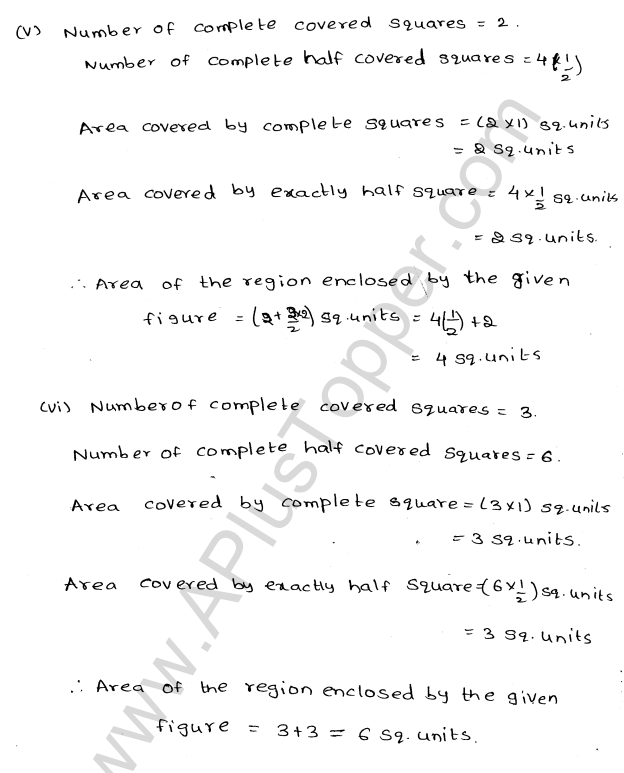 (v) Number of complete covered squares = 2.
Number of complete half covered squares = 4(1/2)
Area covered by complete squares = (2 x 1) sq.units
= 2 sq.units
Area covered by exactly half square = 4 x 1/2 sq.units
= 2 sq.units.
∴ Area of the region enclosed by the given
figure = (2 + ) sq.units = 4(1/2) + 2
= 4 sq.units
(vi) Number of complete covered squares = 3.
Number of complete half covered squares = 6.
Area covered by complete square = (3 x 1) sq.units
= 3 sq.units.
Area covered by exactly half square = (6 x 1/2) sq.units
= 3 sq.units
∴ Area of the region enclosed by the given
figure = 3+3 = 6 sq.units.
www.APlusTopper.com